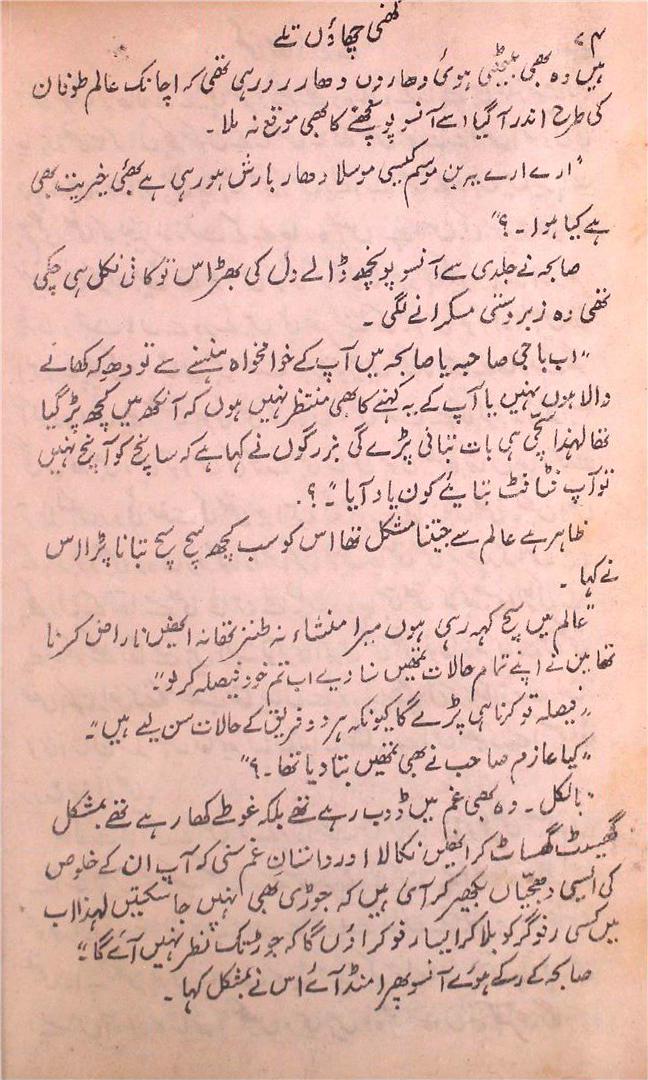 ۷۴
گھنی چھاؤں تلے
ہیں وہ بھی بیٹھی ہوئی دھاروں دھار رو رہی تھی کہ اچانک عالم طوفان
کی طرح اندر آگیا اسے آنسو پونچھنے کا بھی موقع نہ ملا۔
"ارے ارے یہ بن موسم کیسی موسلا دھار بارش ہو رہی ہے بھئی خیریت بھی
ہے کیا ہوا۔؟"
صابحہ نے جلدی سے آنسو پونچھ ڈالے دل کی بھڑاس تو کافی نکل ہی چکی
تھی وہ زبردستی مسکرانے لگی۔
"اب باجی صاحبہ یا صابحہ میں آپ کے خوامخواہ ہنسنے سے تو دھوکہ کھانے
والا ہوں نہیں یا آپ کے یہ کہنے کا بھی منتظر نہیں ہوں کہ آنکھ میں کچھ پڑ گیا
تھا لہٰذا سچّی ہی بات بتانی پڑے گی بزرگوں نے کہا ہے کہ سانچ کو آنچ نہیں
تو آپ فٹافٹ بتایئے کون یاد آیا"۔؟۔
ظاہر ہے عالم سے جیتنا مشکل تھا اس کو سب کچھ سچ سچ بتانا پڑا اس
نے کہا۔
"عالم میں سچ کہہ رہی ہوں میرا منشاء نہ طنز تھا نہ انھیں ناراض کرنا
تھا میں نے اپنے تمام حالات تمھیں سنا دیے اب تم خود فیصلہ کر لو"۔
"فیصلہ تو کرنا ہی پڑے گا کیونکہ ہر دو فریق کے حالات سن لیے ہیں"۔
"کیا عازم صاحب نے بھی تمھیں بتا دیا تھا۔؟"
"بالکل۔ وہ بھی غم میں ڈوب رہے تھے بلکہ غوطے کھا رہے تھے بمشکل
گھسیٹ گھساٹ کر انھیں نکالا اور داستانِ غم سنی کہ آپ ان کے خلوص
کی ایسی دھجیاں بکھیر کر آئی ہیں کہ جوڑی بھی نہیں جا سکتیں لہذا اب
میں کسی رفوگر کو بلا کر ایسا رفو کراؤں گا کہ جوڑ تک نظر نہیں آئے گا"۔
صابحہ کے رکے ہوئے آنسو پھر امنڈ آئے اس نے بمشکل کہا۔